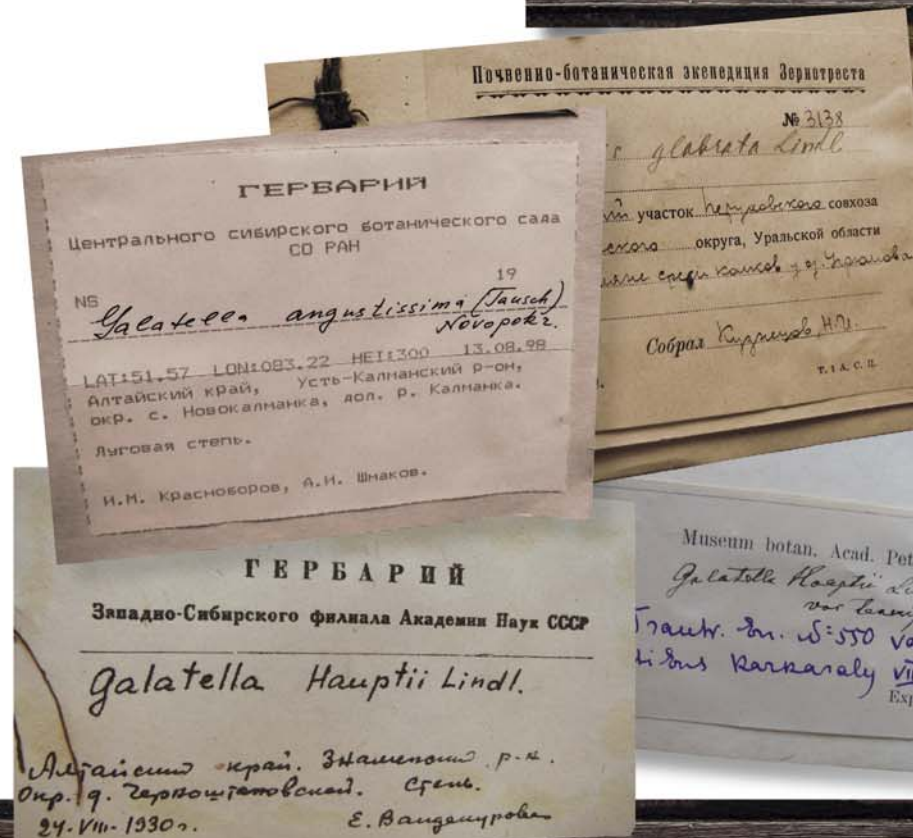 Почвенно-ботаническая экспедиция Зернотреста
№ 3138
glabrata Lindl
участок совхоза
округа, Уральской области
среди колков у
Собрал Кузнецов, Н.И.
ГЕРБАРИЙ
Центрального сибирского ботанического сада
СО РАН
19
NS
Galatella angustissima (Tausch)
Novopokr.
LAT:51.57 LON:083.22 HEI:300 13.08.98
Алтайский край, Усть-Калманский р-он,
окр. с. Новокалманка, дол. р. Калманка.
Луговая степь.
И.М. Красноборов, А.И. Шмаков.
ГЕРБАРИЙ
Западно-Сибирского филиала Академии Наук СССР
Galatella Hauptii Lindl.
Алтайский край. Знаменский р-н.
Окр. д. Степь.
24.VIII-1930 г. Е. Вандакурова
Museum botan. Acad. Pet
Galatella Hauptii
var
Trautv. En. №=550 va
Karkaraly VII
Exp